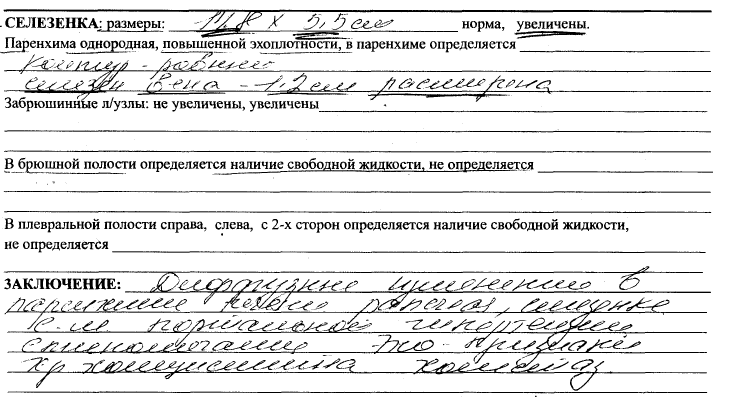 СЕЛЕЗЕНКА: размеры: 14,8 х 5,5 см норма, увеличены.
Паренхима однородная, повышенной эхоплотности, в паренхиме определяется
Контур - ровный
селезен вена - 1.2 см расширена
Забрюшинные л/узлы: не увеличены, увеличены
В брюшной полости определяется наличие свободной жидкости, не определяется
В плевральной полости справа, слева, с 2-х сторон определяется наличие свободной жидкости,
не определяется
ЗАКЛЮЧЕНИЕ: Диффузные изменения в
паренхиме печени селезенке
портальной гипертензии
спленомегалии Эхо-признаки
хр холецистита холестаз.